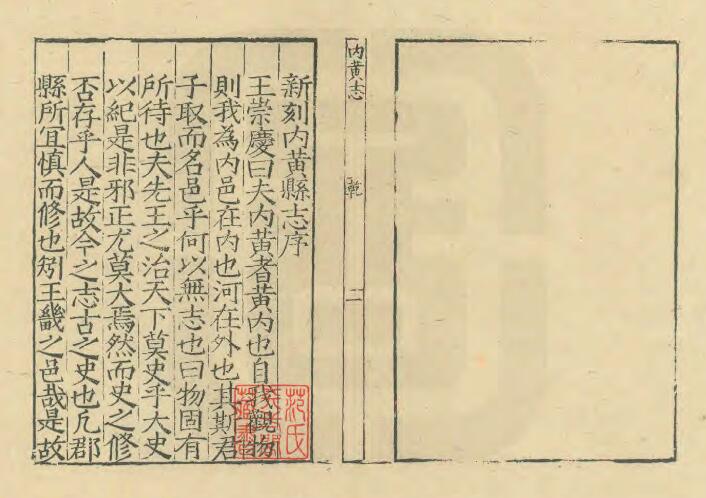 新刻内黃縣志序
王崇慶曰夫内黃者黃内也自我觀物
則我為内邑在内也河在外也其斯君
子取而名邑乎何以無志也曰物固有
所待也夫先王之治天下莫史乎大史
以紀是非邪正尤莫大焉然而史之修
否存乎人是故今之志古之史也凡郡
縣所宜慎而修也矧王畿之邑哉是故
内黃志
二
范氏